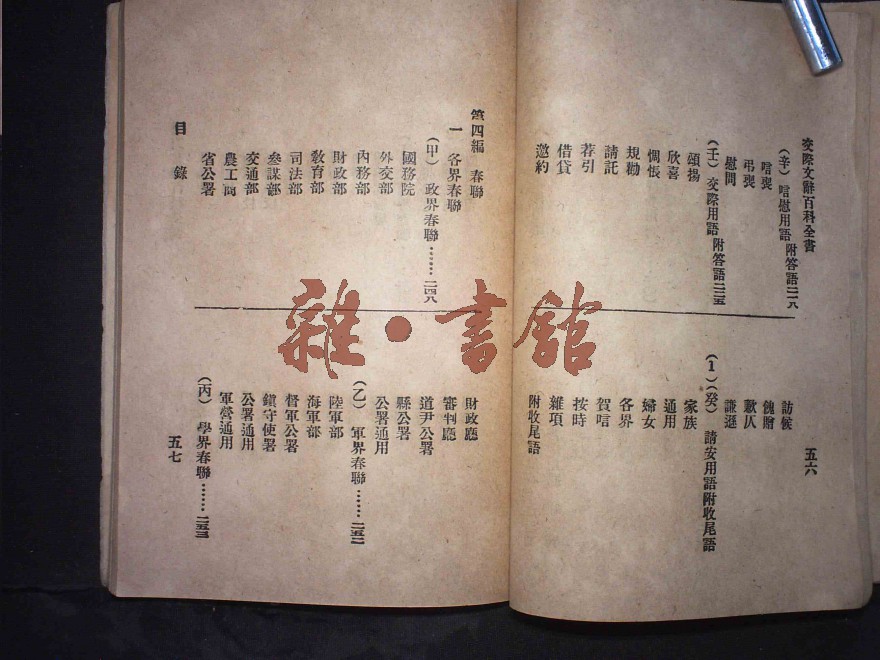 交際文辭百科全書
(辛) 唁慰用語 附答語 二一八
唁喪
弔喪
慰問
(壬) 交際用語 附答語 二三五
頌揚
欣喜
惆悵
規勸
請託
荐引
借貸
邀約
訪候
餽贈
歉仄
謙遜
(1)(癸) 請安用語附收尾語
家族
通用
婦女
各界
賀唁
按時
雜項
附收尾語
五六
第四編 春聯
一 各界春聯
(甲) 政界春聯……二四八
國務院
外交部
內務部
財政部
敎育部
司法部
參謀部
交通部
農工商
省公署
財政廳
審判廳
道尹公署
縣公署
公署通用
(乙) 軍界春聯……二五二
陸軍部
海軍部
督軍公署
鎮守使署
公署通用
軍營通用
(丙) 學界春聯……二五三
目 錄
五七
雜·書館